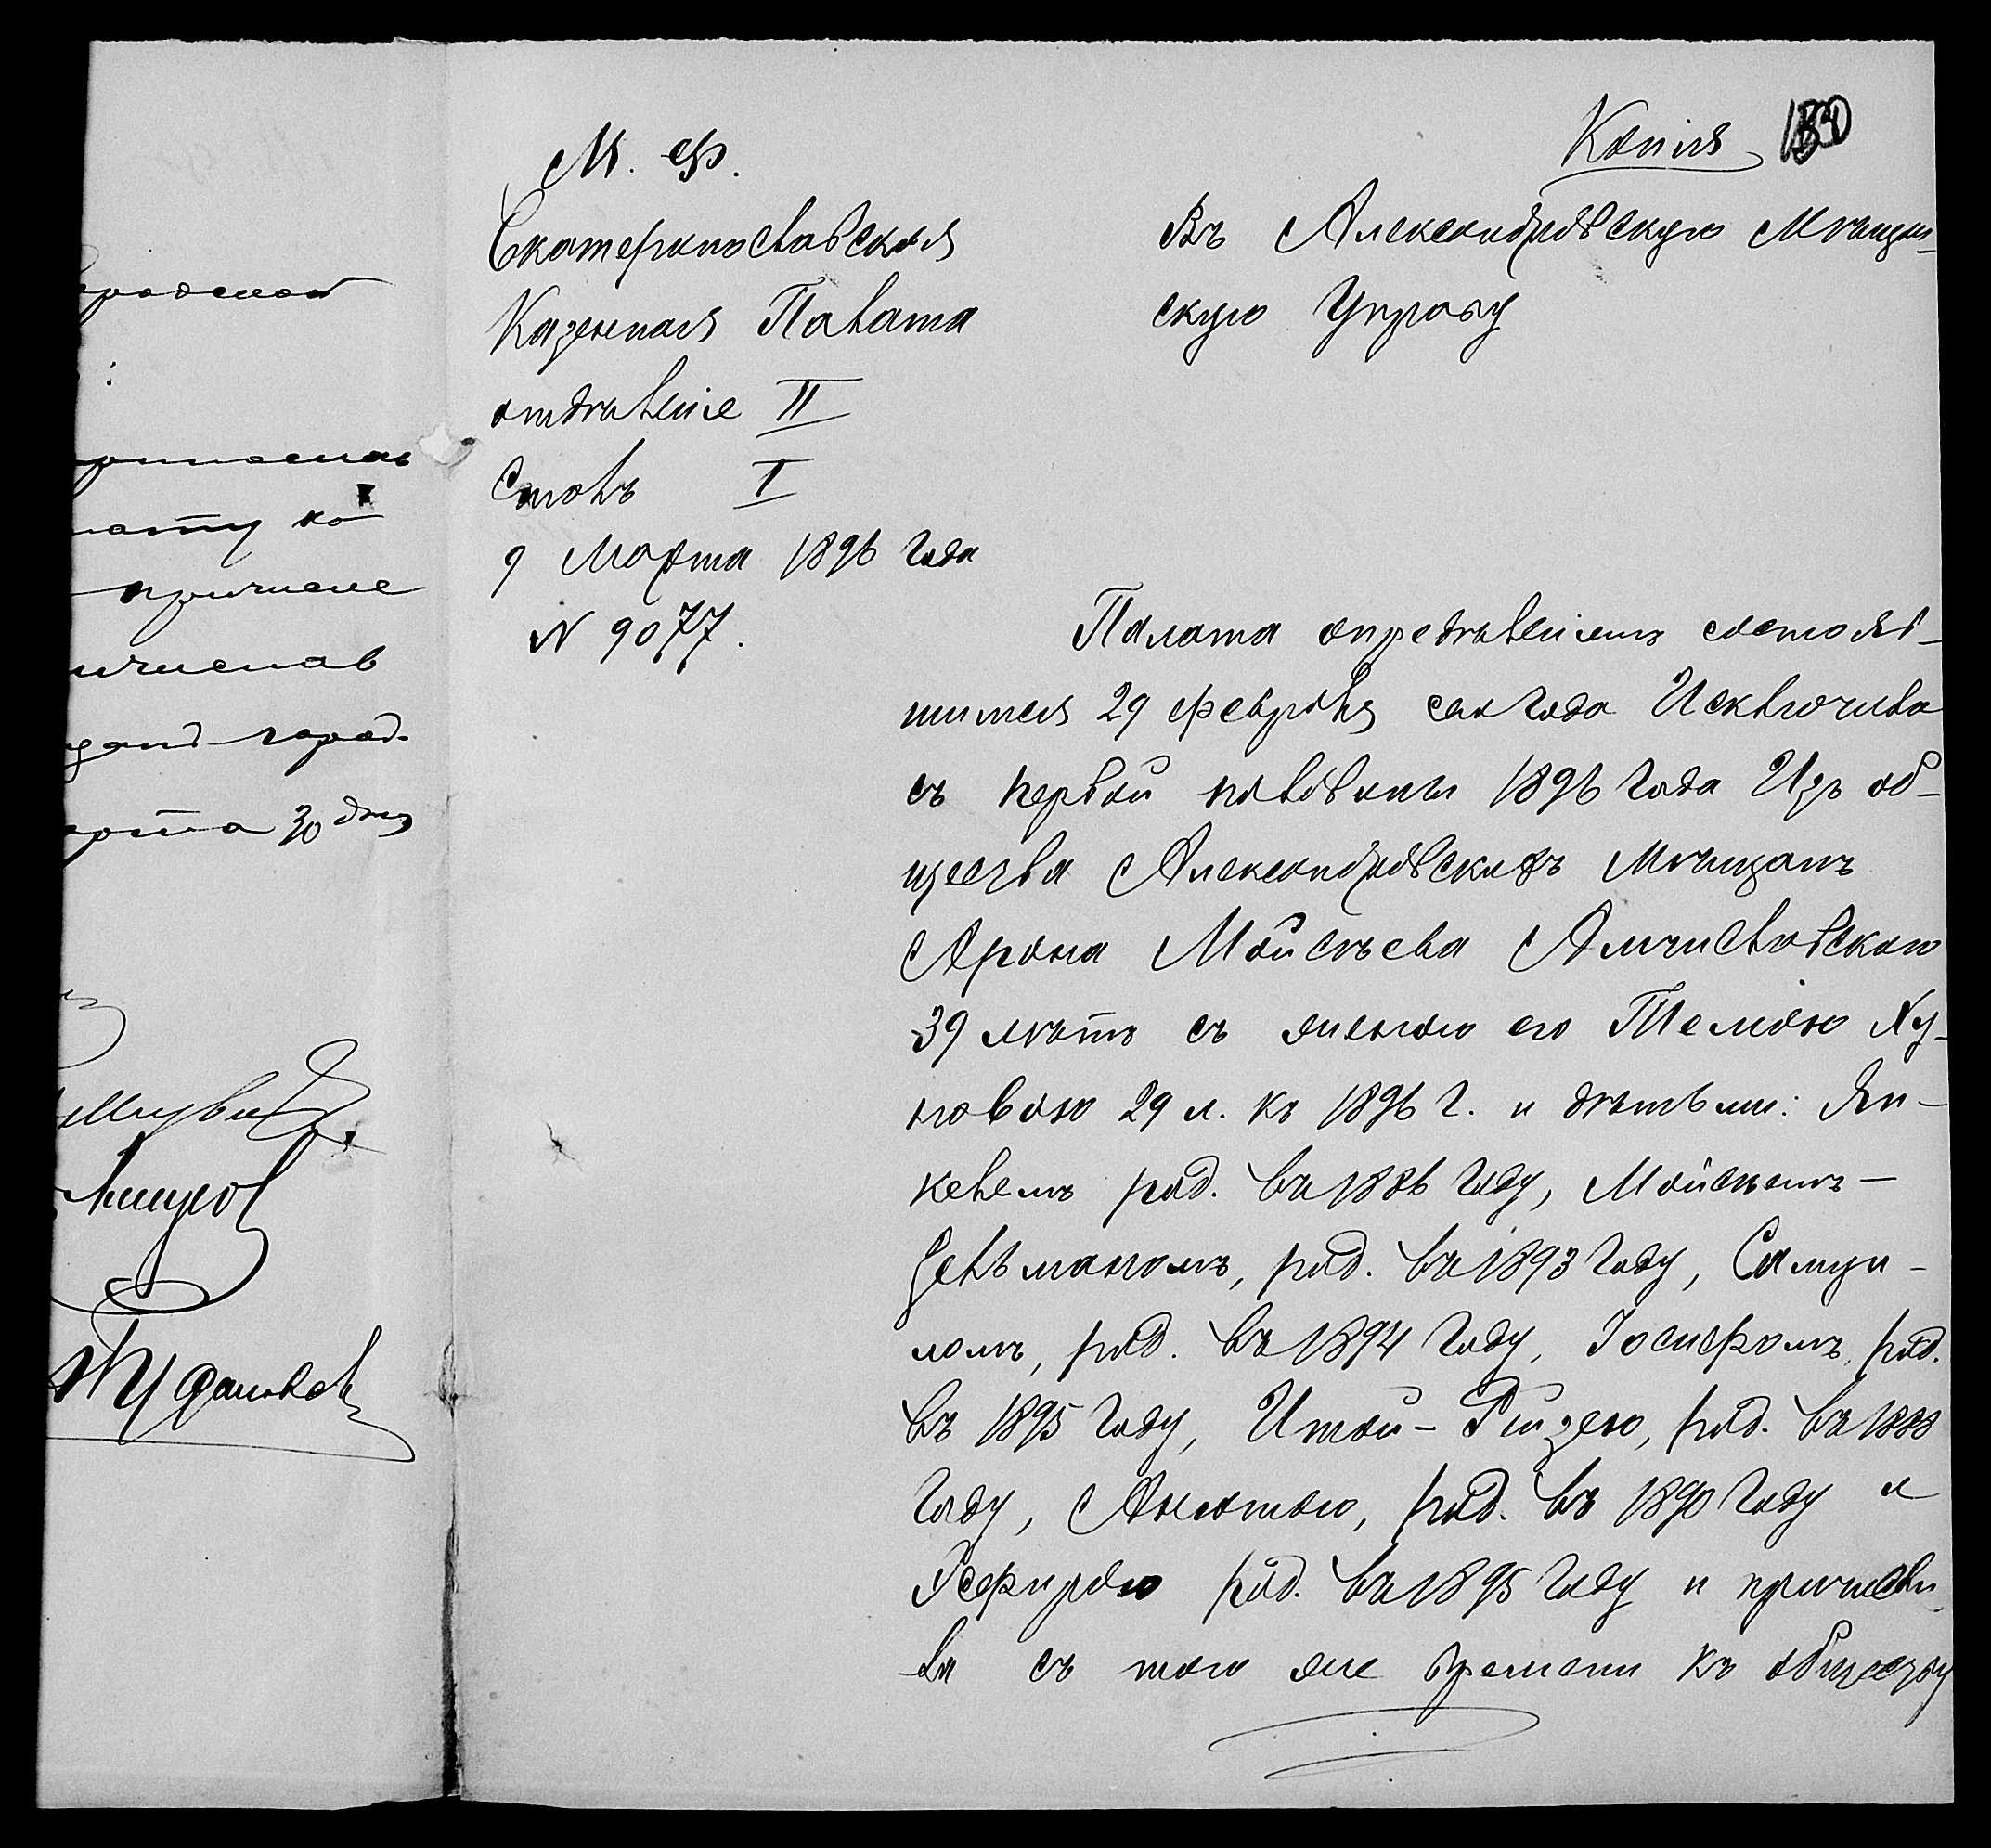 родской
ко
причисле
город.
30 дня
Копія
М. Ф.
Екатеринославская
Казенная Палата
отдѣленіе II
Столъ I
9 Марта 1896 года
N 9077.
Въ Александровскую Мѣщан-
скую Управу
Палата опредѣленіемъ состояв-
шимся 29 февраля сего года Исключила
съ первой половины 1896 года Изъ об-
щества Александровскихъ Мѣщанъ
Арона Мойсѣева Амчиславского
39 лѣтъ съ женою его Темою Ху-
новою 29 л. къ 1896 г. и дѣтьми: Ян-
келемъ род. въ 1886 году, Мойсѣемъ-
Зельманомъ, род. въ 1893 году, Самуи-
ломъ, род. въ 1894 году, Іосифомъ, род.
въ 1895 году, Итой-Рейзею, род. въ 1888
году, Анютою, род. въ 1890 году и
род. въ 1895 году и причисли-
ла съ того же времени къ обществу